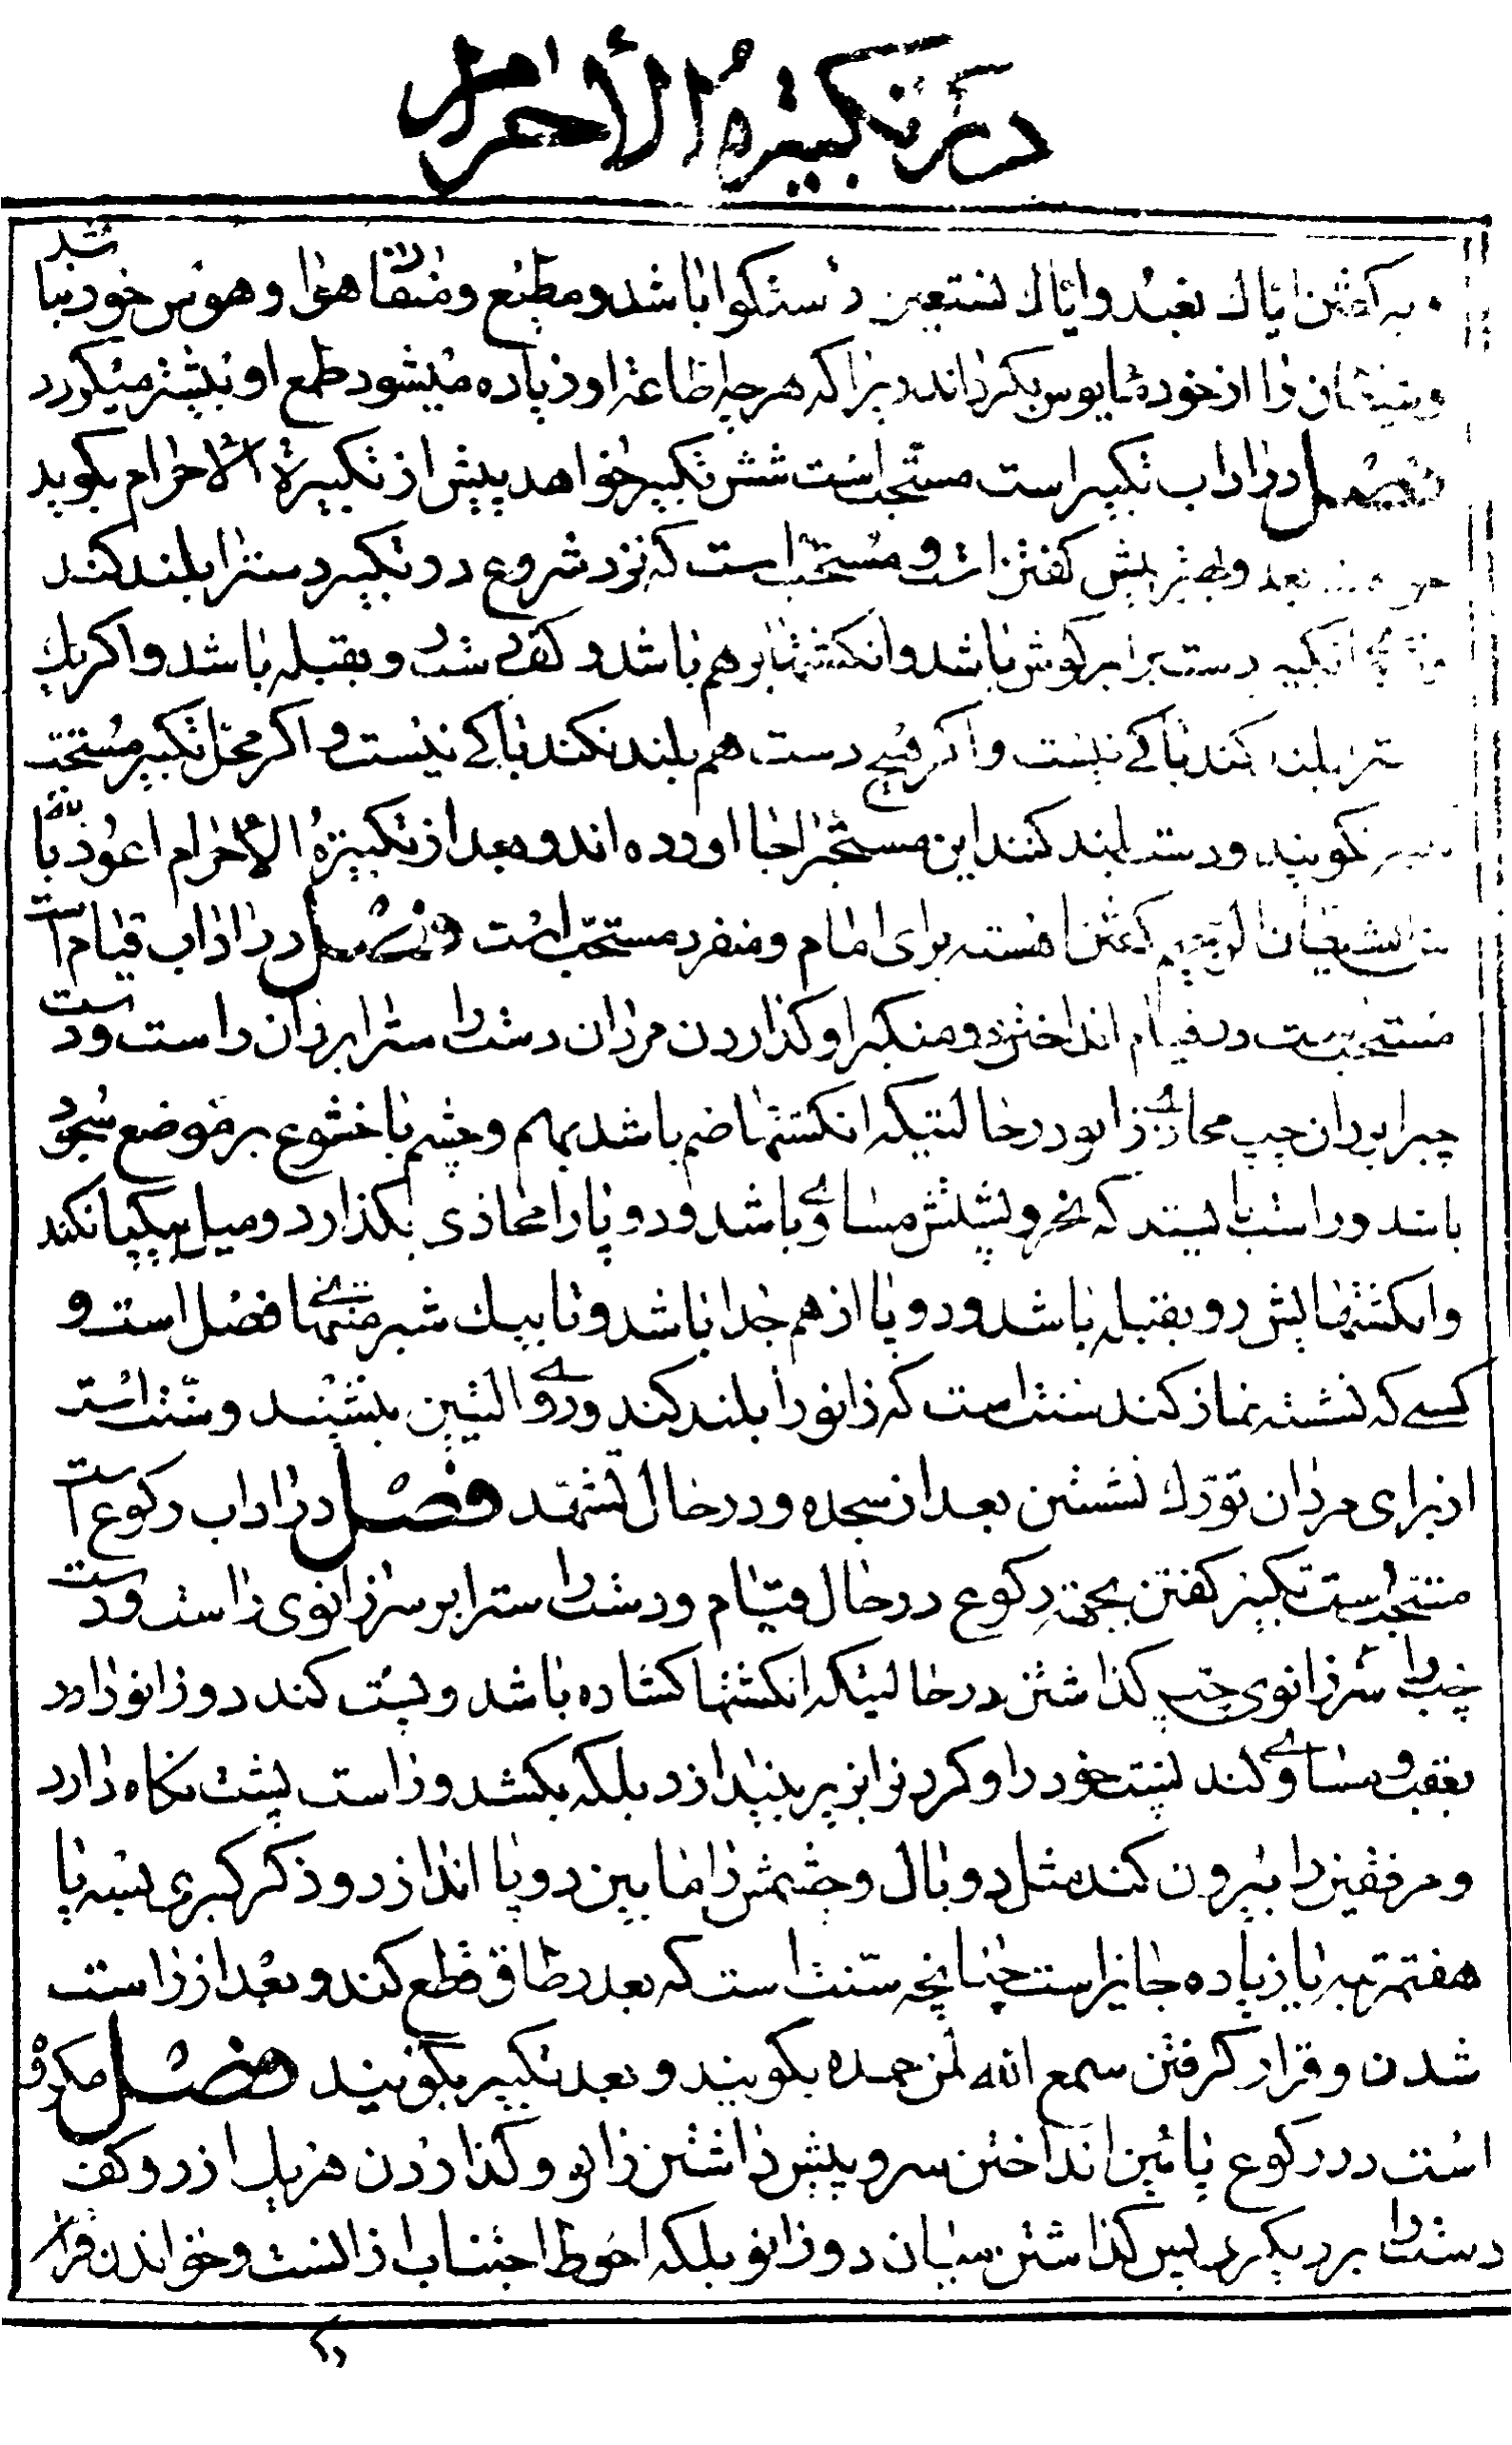 در تكبيرة الأحرام
به كفتن اياك نعبد واياك نستعين راستكو باشد ومطيع ومنقاد هوا وهوس خود نباشد
وشيطان را از خود مايوس بكرداند زيرا كه هرچه اطاعة او زياده ميشود طمع او بيشتر ميكردد
فصل در اداب تكبير است مستحب است شش تكبير خواهد پيش از تكبيرة الاحرام بكويد
بعد و بهتر پيش كفتن است و مستحب است كه نزد شروع در تكبير دسترا بلند كند
تكبير دست برابر كوش باشد وانكشتها بر هم باشد وكف دست رو بقبله باشد واكر يك
بلند كند باكى نيست واكر هيچ دست هم بلند نكند باكى نيست و اكر محل تكبير مستحب
نكويند ودست بلند كنند اين مستحب را بجا اورده اند و بعد از تكبيرة الأحرام اعوذ بالله
من الشيطان الرجيم كفتن اهسته براى امام ومنفرد مستحب است فصل در اداب قيام است
مستحب است در قيام انداختن دو منكب او كذاردن مردان دست راسترا بر ران راست ودست
چپرا بر ران چپ محاذى زانو در حالتيكه انكشتها ضم باشد بهم وچشم با خشوع بر موضع سجود
باشد و راست بايستد كه نحر و پشتش مساوى باشد ودو پا را محاذى بكذارد وميل بيكپا نكند
وانكشتهايش رو بقبله باشد ودو پا از هم جدا باشد وتا بيك شبر منتهى افضل است و
كسى كه نشسته نماز كند سنت است كه زانو را بلند كند و روى اليتين بنشيند وسنت است
از براى مردان تورك نشستن بعد از سجده ودر حال تشهد فصل در اداب ركوع است
مستحب است تكبير كفتن بجهة ركوع در حال قيام ودست راسترا بر سر زانوى راست ودست
چپ را بر سر زانوى چپ كذاشتن در حاليتكه انكشتها كشاده باشد وپست كند دو زانو را در
بعقب و مساوى كند پشت خود را وكردنرا بزير نيندازد بلكه بكشد وراست پشت نكاه دارد
ومرفقين را بيرون كند مثل دو بال وچشمش را ما بين دو پا اندازد وذكر كبرى سه يا
هفتمرتبه يا زياده جايز است چنانچه سنت است كه بعدد طاق قطع كند و بعد از راست
شدن وقرار كرفتن سمع الله لمن حمده بكويند و بعد تكبير بكويند فصل مكروه
است در ركوع پائين انداختن سر و پيش داشتن زانو وكذاردن هر يك از دو كف
دست را بر ديكرى پس كذاشتن ميان دو زانو بلكه احوط اجتناب از انست وخواندن قرآن